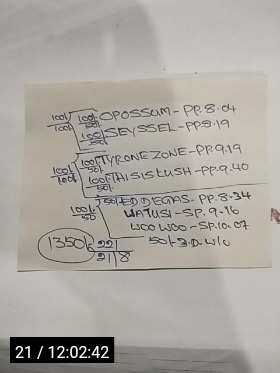 100/- 100/- OPOSSUM - PP. 8.04
100/- 50/-
100/- SEYSSEL - PP.8.19
50/-
100/- 100/- TYRONE ZONE - PP.9.19
100/- 50/-
100/- THIS IS LUSH - PP.9.40
50/-
ED DEGAS - PP. 8-34
100/- WATUSI - SP. 9-16
50
WOO WOO - SP.10.07
1350/- 22 50/- 3.D. W/C
21/8
21 / 12:02:42